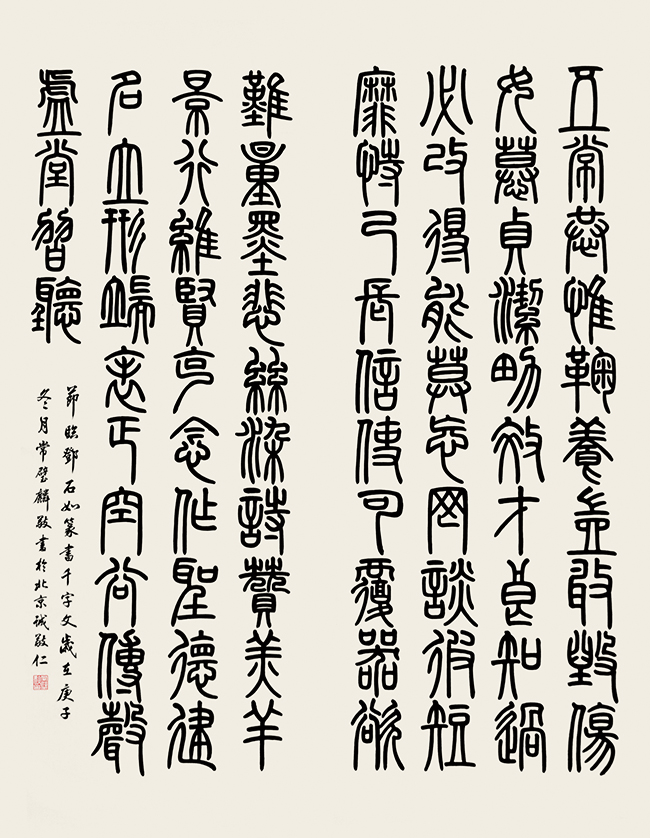 五常恭惟鞠養豈敢毀傷
女慕貞潔男效才良知過
必改得能莫忘罔談彼短
靡恃己長信使可覆器欲
難量墨悲絲染詩贊羔羊
景行維賢克念作聖德建
名立形端表正空谷傳聲
虛堂習聽
節臨鄧石如篆書千字文歲在庚子
冬月常璧麟敬書於北京誠敬仁